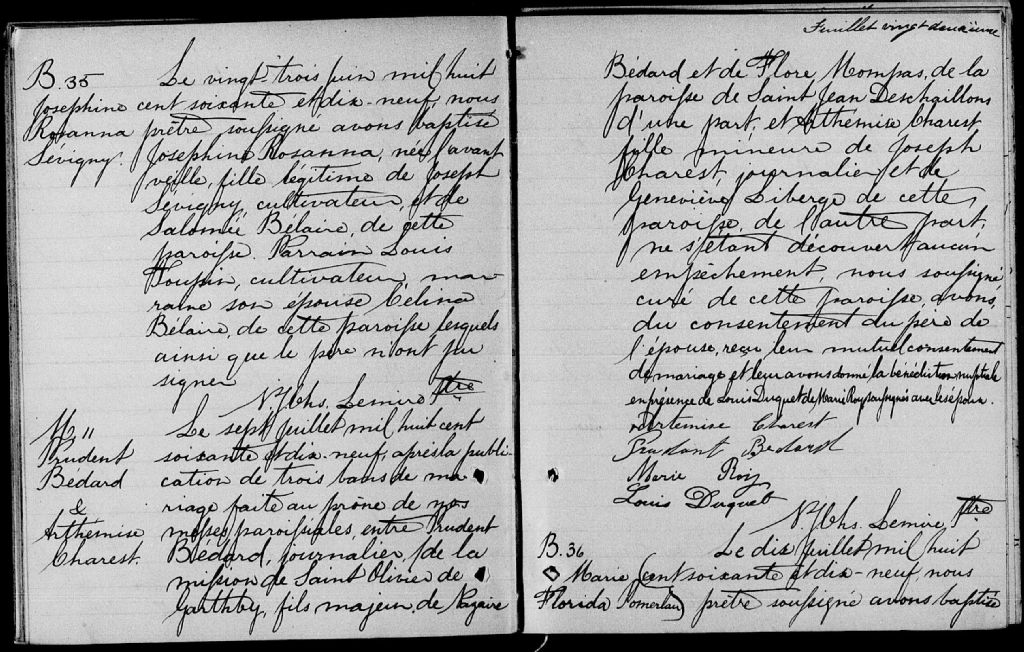 B. 35
Josephine
Rosanna
Sevigny.
Le vingt-trois juin mil huit
cent soixante et dix-neuf, nous
prêtre soussigné avons baptisé
Josephine Rosanna, née l'avant
veille, fille légitime de Joseph
Sévigny, cultivateur, et de
Salomée Bélaire, de cette
paroisse. Parrain Louis
Toupin, cultivateur, mar-
raine son épouse Célina
Bélaire, de cette paroisse lesquels
ainsi que le père n'ont pu
signer
N. Chs. Lemire Ptre
M 11
Prudent
Bédard
&
Arthémise
Charest.
Le sept juillet mil huit cent
soixante et dix-neuf, après la publi-
cation de trois bans de ma-
riage faite au prône de nos
messes paroissiales, entre Prudent
Bédard, journalier, de la
mission de Saint Olivier de
Garthby, fils majeur, de Magaire
Feuillet vingt deuxième
Bédard et de Flore Mompas, de la
paroisse de Saint Jean Deschaillons
d'une part, et Arthémise Charest
fille mineure de Joseph
Charest, journalier, et de
Geneviève Liberge de cette
paroisse, de l'autre part,
ne s'étant découvert aucun
empêchement, nous soussigné
curé de cette paroisse, avons,
du consentement du père de
l'épouse, reçu leur mutuel consentement
de mariage et leur avons donné la bénédiction nuptiale
en présence de Louis Duquet de Marie Roy soussignés avec les époux.
Artemise Charest
Prudant Bedard
Marie Roy
Louis Duquet
N. Chs. Lemire, Ptre
B. 36
Marie
Florida Pomerleau
Le dix juillet mil huit
cent soixante et dix-neuf, nous
prêtre soussigné avons baptisé